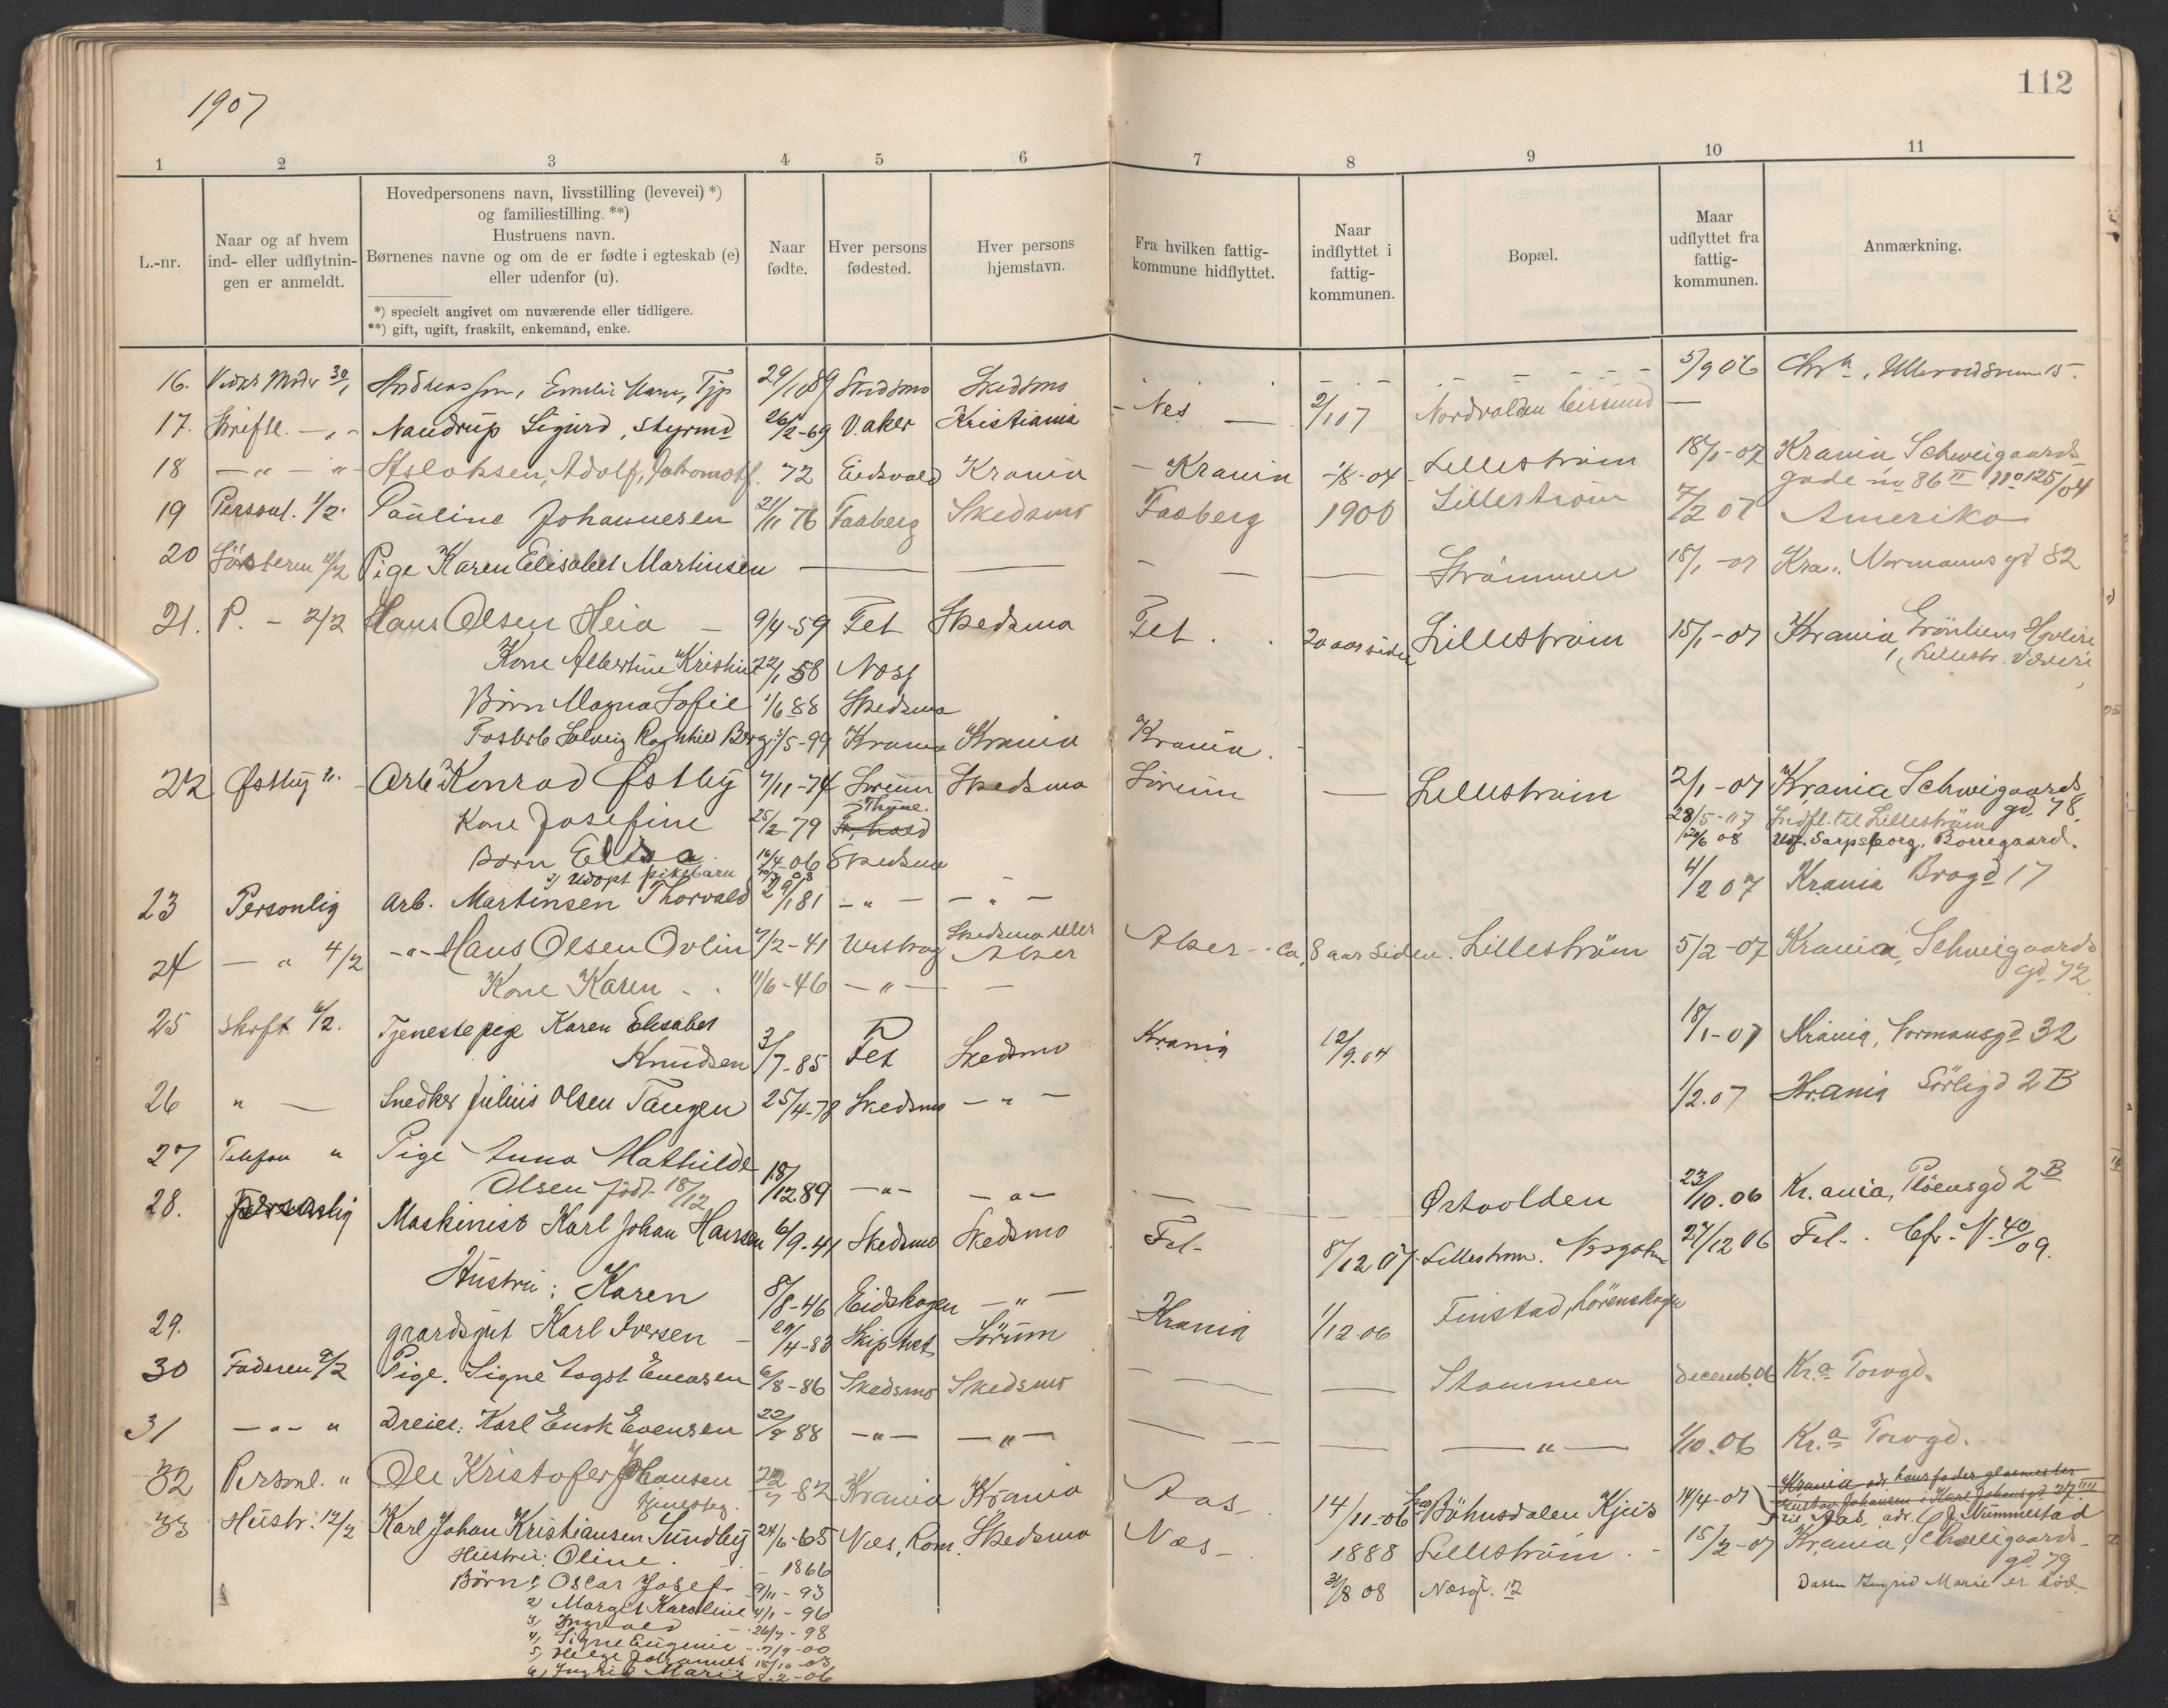 1907
112
1 2 3 4 5 6 7 8 9 10 11
L.-nr.
Naar og af hvem
ind- eller udflytnin-
gen er anmeldt.
Hovedpersonens navn, livsstilling (levevei) *)
og familiestilling. **)
Hustruens navn.
Børnenes navne og om de er fødte i egteskab (e)
eller udenfor (u).
*) specielt angivet om nuværende eller tidligere.
**) gift, ugift, fraskilt, enkemand, enke.
Naar
fødte.
Hver persons
fødested.
Hver persons
hjemstavn.
Fra hvilken fattig-
kommune hidflyttet.
Naar
indflyttet i
fattig-
kommunen.
Bopæl.
Maar
udflyttet fra
fattig-
kommunen.
Anmærkning.
16. 29/1 89 Skedsmo Skedsmo 5/9 06 15.
17. Skriftl. - " - Naudrup Sigurd, Styrmd 26/2-69 V. Aker Kristiania - Nes - 2/1 07
18 - " - " - Aslaksen, Adolf, 72 Eidsvold Krania - Krania -/8-04 Lillestrøm 18/1-07 Krania Schweigaards
gade no 86 II no 125/04
19 Personl. 1/2. Pauline Johannesen 21/11 76 Faaberg Skedsmo Faaberg 1900 Lillestrøm 7/2 07 Amerika
20 Søsteren Pige Karen Elisabet Martinsen Strømmen 18/1-07 Kra.. Normanns gd 32
21. P. - 2/2 Hans Olsen Heia - 9/4-59 Fet Skedsmo Fet. 20 aar siden Lillestrøm 15/1-07 Krania Grønliens Høvleri
(Lillestr. Væveri
Kone Albertine Kristine 22/1 58 Næs
Børn Magna Sofie 1/6 88 Skedsmo
Fosterb Solveig Ragnhild Berg 5/5-99 Krania Krania Krania.
22 Østby Arb Konrad Østby 7/11-74 Sørum Skedsmo Sørum - Lillestrøm 2/1-07 Krania Schweigaards
gd. 78.
Kone Josefine 25/2-79 28/5-07 Indfl. til Lillestrøm
Barn Elsa 16/4-06 Skedsmo 20/6 08 Udf. Sarpsborg, Borregaard.
2) Adopt pikebarn
23 Personlig Arb. Martinsen Thorvald 29/1 81 - " - - " - 4/2 07 Krania Brogd 17
24 - " 4/2 - " - Hans Olsen Ovlin 7/2-41 Skedsmo eller
Aker Aker - ca. 8 aar siden. Lillestrøm 5/2-07 Krania, Schweigaards
gd. 72
Kone Karen - . 11/6-46 - " - -
25 Skrft 6/2. Tjenestepige Karen Elisabet
Knudsen 3/7-85 Fet Skedsmo Krania 12/9.04 18/1-07 Krania, Normansgd 32
26 " - Snedker Julius Olsen Tangen 25/4-78 Skedsmo - " - 1/2.07 Krania Sørligd 2 B
27 Telefon " Pige Anna Mathilde
Olsen født 18/12 18/12 89 - " - - " - - Østvolden 23/10.06 Kr.ania, Pløensgd 2 B
28. Personlig Maskinist Karl Johan Hansen 6/9-41 Skedsmo Skedsmo Fet- 8/12 07 Lillestrøm. 27/12 06 Fet-. Cfr. N. 40/09.
Hustru: Karen 8/8-46 Eidskogen - " -
29. gaardsgut Karl Iversen - 29/4-83 Skiptvet Sørum Krania 1/12 06 Finstad, Lørenskogn
30 Faderen 9/2 Pige. Signe Evensen 6/8-86 Skedsmo Skedsmo - - Stommen Decemb. 06 Kr.a Torvgd.
31 - " - " Dreier: Karl Evensen 22/8 88 - " - - " - - " - 1/10.06 Kr.a Torvgd.
32 Personl. " Ole Kristofer Johansen
tjenestg. 82 Krania Krania Aas- 14/11-06 Bøhnsdalen Kjus 14/4-07 Krania adr. hans fader glasmester
Gustav Johansen, Karl Johansgd 27 IIII
til Aas, adr. J. Nummestad
33 Hustr. 12/2 Karl Johan Kristiansen Sundby 24/6-65 Næs, Rom. Skedsmo Næs- 1888 Lillestrøm. - 15/2-07 Krania, Schweigaards-
gd. 79
Hustru: Oline. - 1866 31/8 08 Næsgt. 12 Datter Ingrid Marie er død
Børn: 1) Oscar Josef 9/11-93
2) Margit Karoline 4/1-96
3) Ingvald - 26/7-98
4) Signe Eugenie - 7/9-00
5) Helge Johannes 15/10-03
6) Ingrid Marie 8.2-06